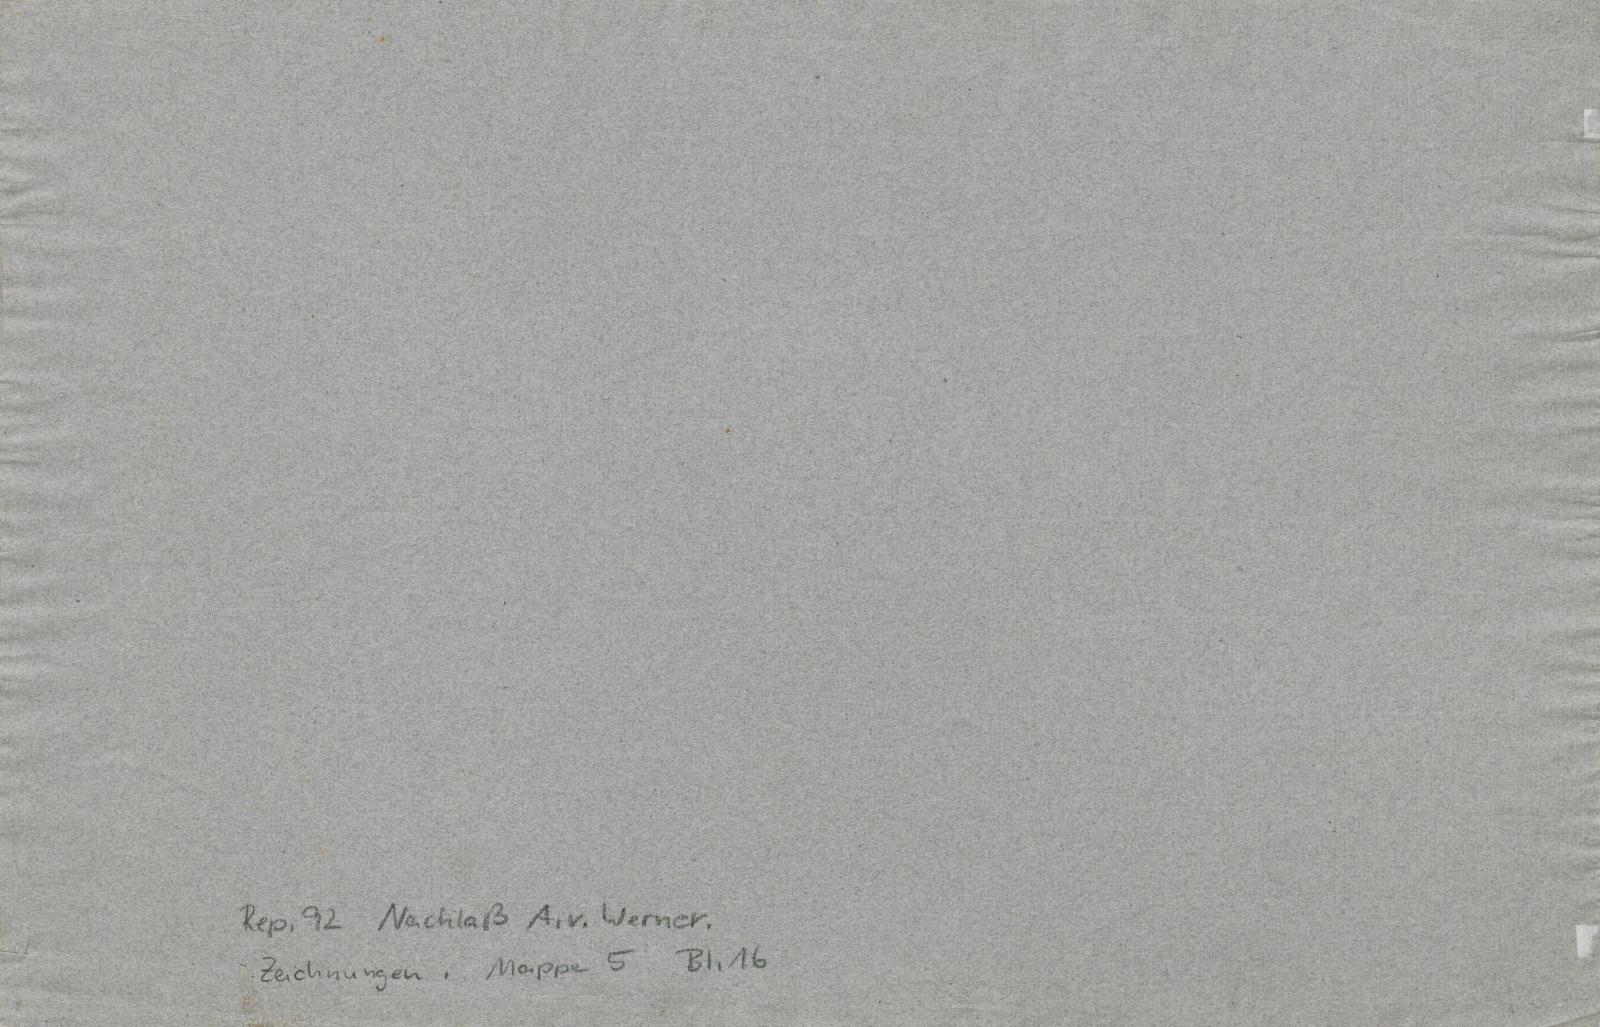 Rep. 92 Nachlaß A. v. Werner.
Zeichnungen. Mappe 5 Bl. 16